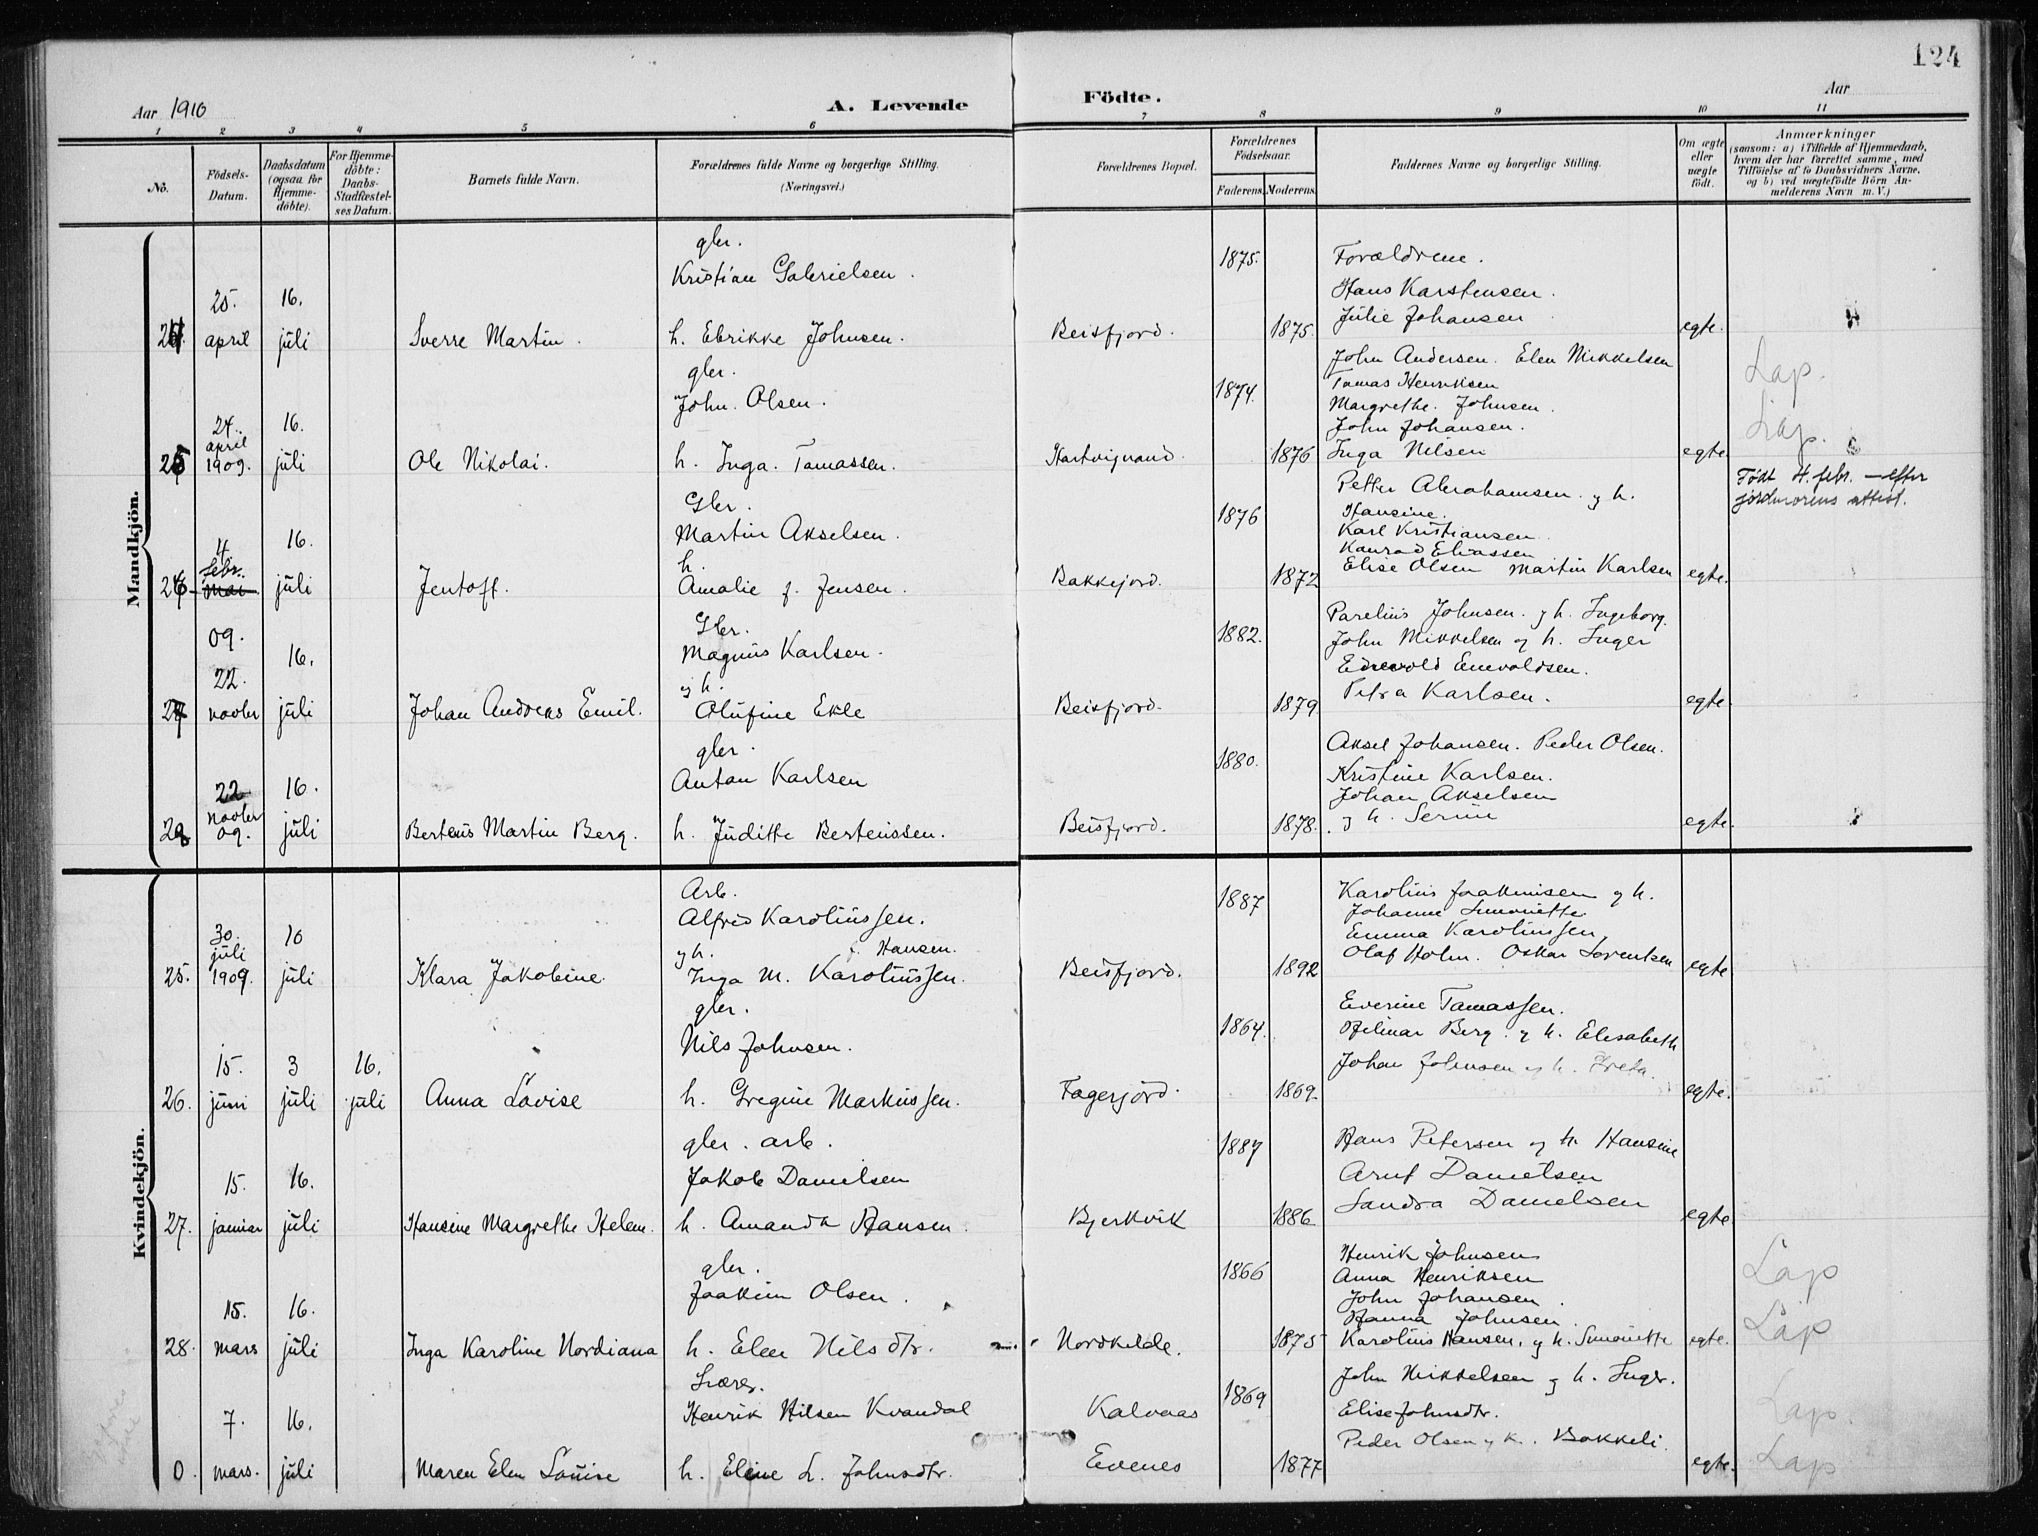 124
Aar 1910
A. Levende
Födte.
Aar
1 2 3 4 5 6 7 8 9 10 11
No.
Födsels-Datum.
Daabsdatum (ogsaa for Hjemme-döbte).
For Hjemme-döbte: Daabs-Stadfæstel-ses Datum.
Barnets fulde Navn.
Forældrenes fulde Navne og borgerlige Stilling.
(Næringsvei.)
Forældrenes Bopæl.
Forældrenes Födselsaar.
Faderens. Moderens.
Faddernes Navne og borgerlige Stilling.
Om ægte eller uægte födt.
Anmærkninger
(saasom: a) i Tilfælde af Hjemmedaab,
hvem der har forrettet samme, med
Tilföielse af to Daabsvidners Navne,
og b) ved uægtefödte Börn An-
melderens Navn m. V.)
Mandkjön.
gbr.
Kristian Gabrielsen.
1875.
Forældrene.
Hans Karstensen.
25. 16.
Julie Johansen
24. april juli Sverre Martin. h. Ebrikke Johnsen. Beisfjord. 1875. egte.
gbr.
John Andersen. Elen Mikkelsen
Lap.
John. Olsen.
1874.
Tomas Henriksen
Margrethe. Johnsen.
24. 16.
John Johansen.
Lap.
25 april 1909. juli Ole Nikolai. h. Inga. Tomassen. Hartvigvand. 1876 Inga Nilsen egte
Gbr.
Petter Abrahamsen. g h.
Hansine.
Født 4. febr. — efter
jordmorens attest.
Martin Akselsen.
1876
Karl Kristiansen
Konrad Eliassen
4 16.
h.
Elise Olsen Martin Karlsen
26 febr. mai juli Jentoft. Amalie f. Jensen. Bakkejord. 1872 egte.
09.
Gbr.
Magnus Karlsen.
1882.
Parelius Johnsen. g h. Ingeborg.
John Mikkelsen og h. Inger
Enevoldsen.
22. 16.
g h.
Petra Karlsen.
27 novbr juli Johan Andreas Emil. Olufine Ekle Beisfjord. 1879 egte.
gbr.
Anton Karlsen
1880.
Aksel Johansen. Peder Olsen.
Kristine Karlsen.
Johan Akselsen
22 16.
g h. Serine
28 novber 09. juli Berteus Martin Berg. h. Juditte Berteussen. Beisfjord. 1878. egte.
Kvindekjön.
Arb.
Alfred Karoliussen.
1887
Karolius Joakimsen g h.
Johanne Simonette
Emma Karoliussen
30. 10
g h. f. Hansen.
Olaf Holm. Oskar Lorentsen
25. juli 1909. juli Klara Jakobine. Inga M. Karoliussen. Beisfjord. 1892 egte
gbr.
Nils Johnsen.
1864.
Everine Tamassen.
Hilmar Berg. g h. Elisabeth
Johan Johnsen og h. Greta.
15. 3 16.
26. juni juli juli Anna Lovise h. Gregine Markussen. Fagerjord. 1869. egte.
gbr. arb.
Jakob Danielsen
1887
Hans Petersen og h. Hansine
Arnt Danielsen
Sandra Danielsen
15. 16.
27. januar juli Hansine Margrethe Helene. h. Amanda Hansen. Bjerkvik 1886 egte
gbr.
Joakim Olsen.
1866
Henrik Johnsen
Anna Henriksen
John Johansen.
Hanna Johnsen.
Lap
15. 16.
Lap
28. mars juli Inga Karoline Nordiana h. Elen Nilsdtr. Nordkilde. 1875 Karolius Hansen. g h. Simonette egte.
Lærer.
Henrik Nilsen Kvandal
Kalvaas
1869
John Mikkelsen g h. Inger.
Elise Johnsdtr.
Peder Olsen g k. Bakkeli.
Lap.
7. 16.
0. mars. juli Maren Elen Louise h. Eline L. Johnsdtr. Evenes 1877 egte.
Lap